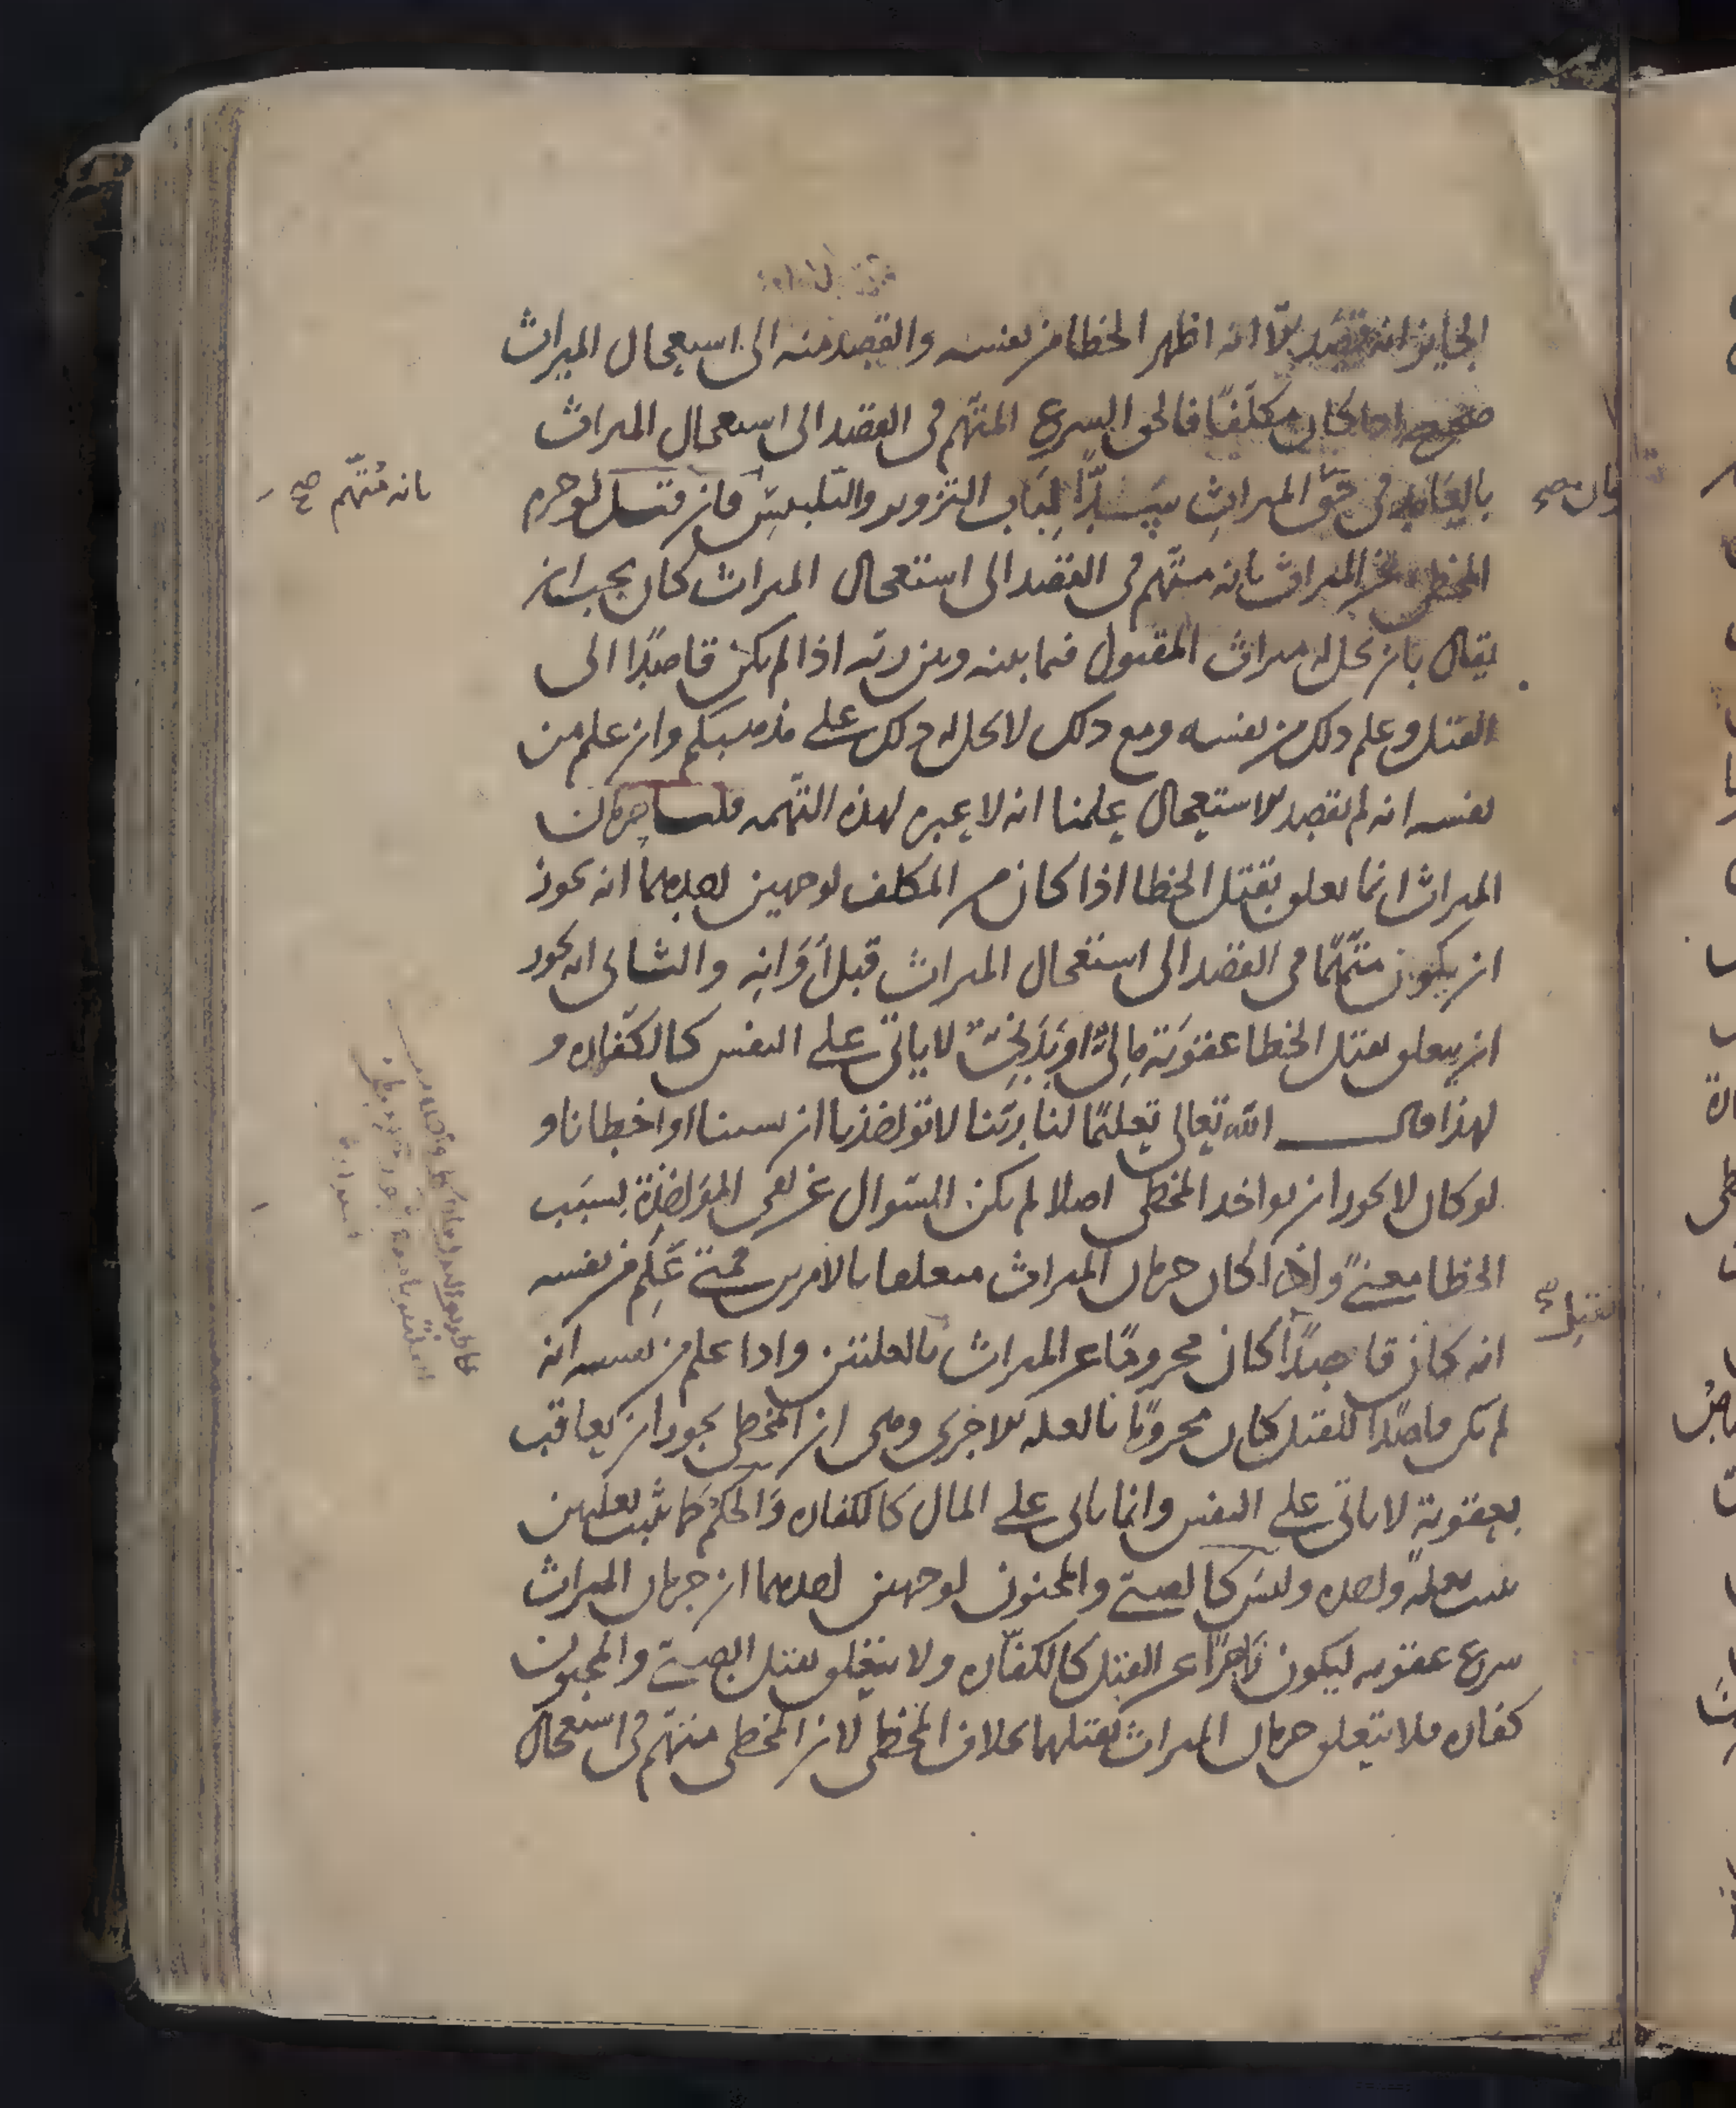 الجايز انه قصد الا انه اظهر الخطا من نفسه والقصد منه الى استعجال الميراث
صحيح اذا كان مكلفًا فالحق الشرع المتهم فى القصد الى استعجال الميراث
بالعامد فى حق الميراثِ سدًّا لباب التزوير والتلبيس فان قتل لو حرم
المخطى عن الميراث بانه متهم فى القصد الى استعجال الميراث كان يجب ان
يقال بان يحل له ميراث المقتول فيما بينه وبين ربه اذا لم يكن قاصدًا الى
القتل وعلم ذلك من نفسه ومع ذلك لا يحل له ذلك على مذهبكم وان علم من
نفسه انه لم يقصد الاستعجال علمنا انه لا عبره لهذه التهمه قلنا حرمان
الميراث انما تعلق بقتل الخطا اذا كان من المكلف لوجهين احدهما انه يجوز
ان يكون متهمًا فى القصد الى استعجال الميراث قبل اَوَانِه والثانى انه يجوز
ان يتعلق بقتل الخطا عقوبَة مالية او بدنية لا ياتى على النفس كالكفاره و
لهذا قال الله تعالى تعليمًا لنا ربّنا لا تواخذنا ان نسينا او اخطانا و
لو كان لا يجوز ان يواخذ المخطى اصلا لم يكن السوال عن نفى المواخذة بسبَب
الخطا معنىً واذا كان حرمان الميراث متعلقا بالامرين فمتى عَلِم من نفسه
انه كان قاصدًا كان محرومًا عن الميراث بالعلتين واذا علم من نفسه انه
لم يكن قاصدًا للقتل كان محرومًا بالعله الاخرى وهى ان المخطى يجوز ان يعاقب
بعقوبة لا ياتى على النفس وانما ياتى على المال كالكفاره وَالحكم كما يثبت بعلتين
يثبت بعلةً واحده وليسَ كالصبى والمجنون لوجهين احدهما ان حرمان الميراث
شرع عقوبه ليكون زاجرًا عن القتل كالكفّاره ولا يتعلق بقتل الصبى والمجنون
كفاره فلا يتعلق حرمان الميراث بقتلهما بخلاف المخطى لان المخطى متهم فى استعجال
بانه مُتّهم صح